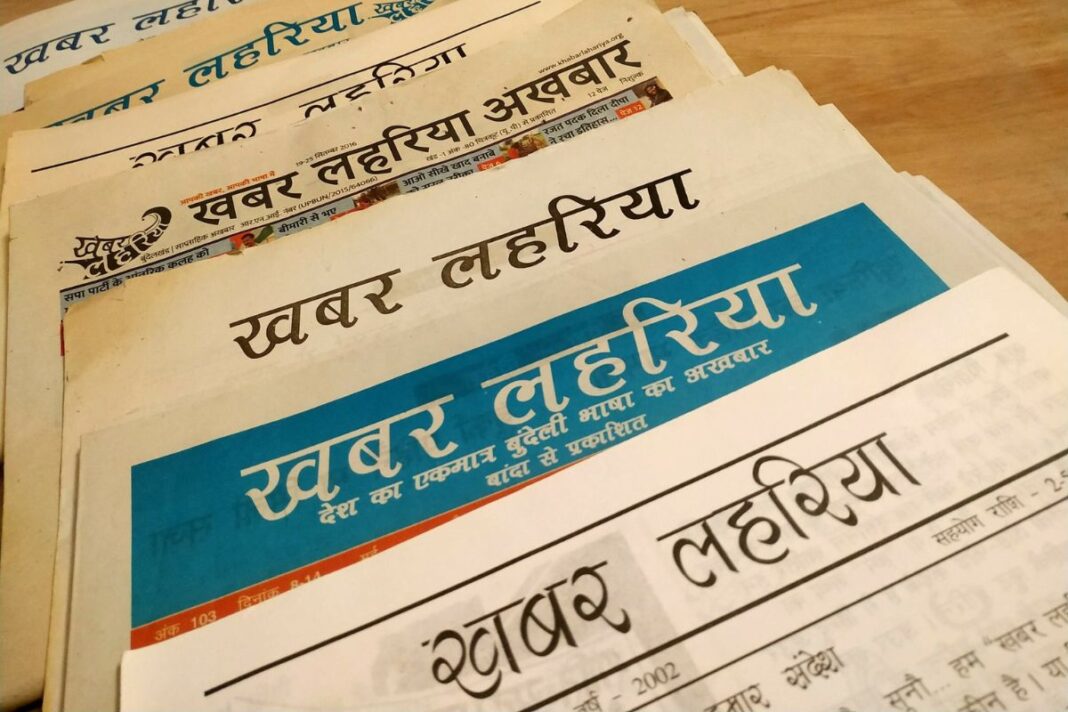 खबर लहरि
खबर लहरिया
खबर लहरिया
खबर लहरिया
www.khabarlahariya.org
आपकी खबर, आपकी भाषा में
19-25 सितम्बर 2016
खबर लहरिया अखबार
12 पेज निशुल्क
खबर लहरिया
बुंदेलखंड | साप्ताहिक अखबार आर.एन.आई. नंबर (UPBUN/2015/64066) खंड -1 अंक -80 चित्रकूट (यू पी) से प्रकाशित
सपा पार्टी के आंतरिक कलह को
बीमारी से भए
आओ सीखे खाद बनाबे
रजत पदक दिला दीपा
ने रचा इतिहास... पेज 12
खबर लहरिया
खबर लहरिया
देश का एकमात्र बुंदेली भाषा का अखबार
बांदा से प्रकाशित
अंक 103 दिनांक 8-14 मई
खबर लहरिया
वर्ष - 2002
सहयोग राशि - 2-5
हमार संदेश
सुनौ... हम "खबर लह
है। या